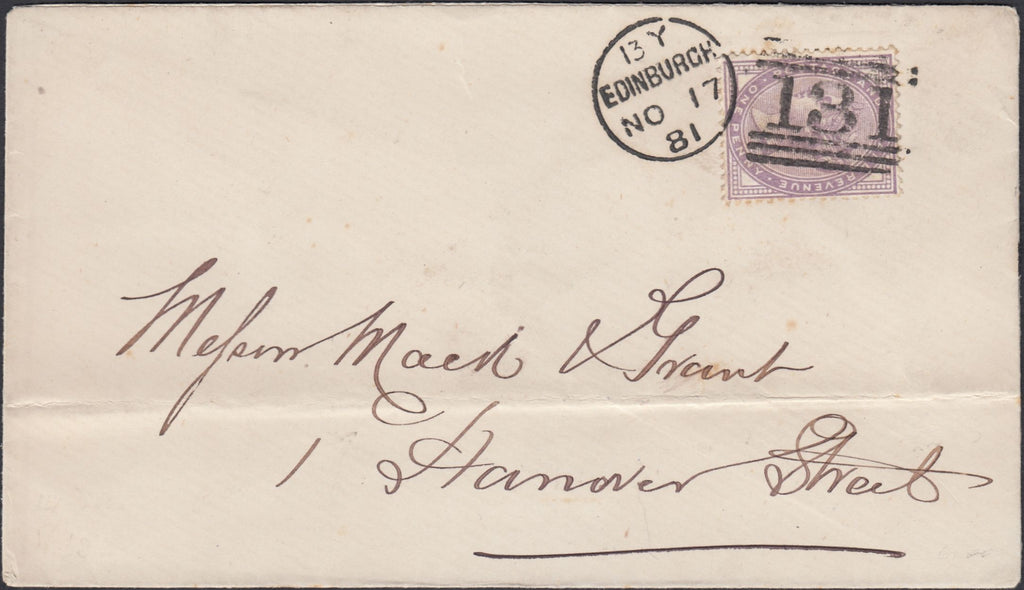 13 Y
EDINBURGH
NO 17
81
131
ONE PENNY · REVENUE
Messrs Mack & Grant
1 Hanover Street